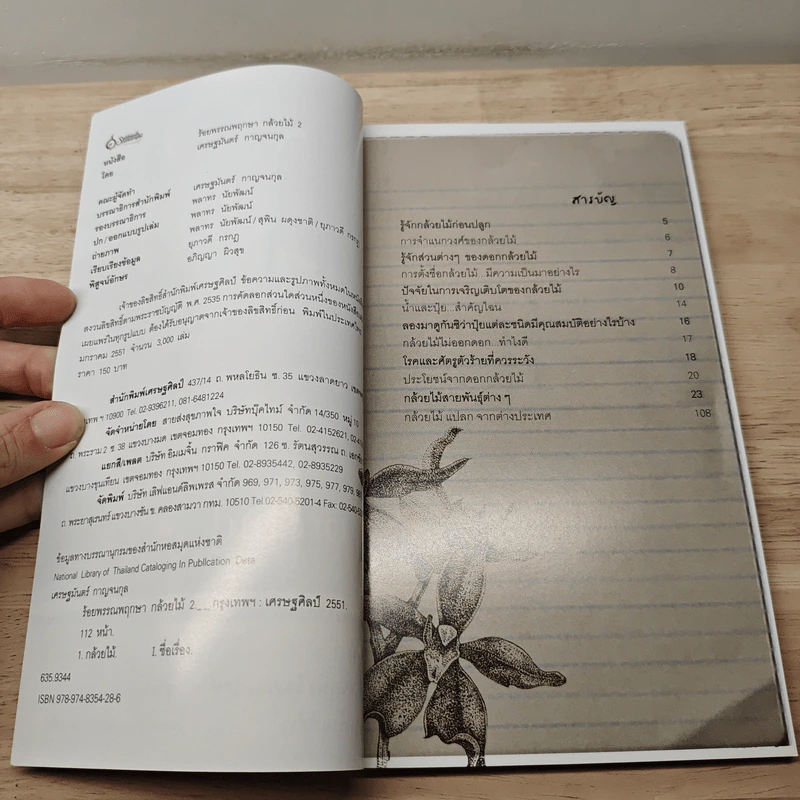 หนังสือ ร้อยพรรณพฤกษา กล้วยไม้ 2
โดย เศรษฐมันตร์ กาญจนกุล
คณะผู้จัดทำ เศรษฐมันตร์ กาญจนกุล
บรรณาธิการสำนักพิมพ์ พลาทร นัยพัฒน์
รองบรรณาธิการ พลาทร นัยพัฒน์
ปก / ออกแบบรูปเล่ม พลาทร นัยพัฒน์ / สุพิน ผดุงชาติ / ยุภาวดี กรกฎ
ถ่ายภาพ
เรียบเรียงข้อมูล ยุภาวดี กรกฎ
พิสูจน์อักษร อภิญญา ผิวสุข
เจ้าของลิขสิทธิ์สำนักพิมพ์เศรษฐศิลป์ ข้อความและรูปภาพทั้งหมดใน
สงวนลิขสิทธิ์ตามพระราชบัญญัติ พ.ศ. 2535 การคัดลอกส่วนใดส่วนหนึ่งของหนังสือ
เผยแพร่ในทุกรูปแบบ ต้องได้รับอนุญาตจากเจ้าของลิขสิทธิ์ก่อน พิมพ์ในประเทศไทย
มกราคม 2551 จำนวน 3,000 เล่ม
ราคา 150 บาท
สำนักพิมพ์เศรษฐศิลป์ 437/14 ถ. พหลโยธิน ซ. 35 แขวงลาดยาว
10900 Tel. 02-9396211, 081-6481224
จัดจำหน่ายโดย สายส่งสุขภาพใจ บริษัทบุ๊คไทม์ จำกัด 14/350 หมู่ 10
ถ. พระราม 2 ซ 38 แขวงบางมด เขตจอมทอง กรุงเทพฯ 10150 Tel. 02-4152621,
แยกสี/เพลต บริษัท อิมเมจิ้น กราฟิค จำกัด 126 ซ. รัตนสุวรรณ ถ.
แขวงบางขุนเทียน เขตจอมทอง กรุงเทพฯ 10150 Tel. 02-8935442, 02-8935229
จัดพิมพ์ บริษัท เลิฟแอนด์ลิพเพรส จำกัด 969, 971, 973, 975, 977, 979,
ถ. พระยาสุเรนทร์ แขวงบางชัน ข. คลองสามวา กทม. 10510 Tel.02-540-5201-4 Fax:
ข้อมูลทางบรรณานุกรมของสำนักหอสมุดแห่งชาติ
National Library of Thailand Cataloging In Publication Data
เศรษฐมันตร์ กาญจนกุล
ร้อยพรรณพฤกษา กล้วยไม้ 2__ กรุงเทพฯ : เศรษฐศิลป์ 2551.
112 หน้า.
1. กล้วยไม้. I. ชื่อเรื่อง.
635.9344
ISBN 978-974-8354-28-6
สารบัญ
รู้จักกล้วยไม้ก่อนปลูก 5
การจำแนกวงศ์ของกล้วยไม้ 6
รู้จักส่วนต่างๆ ของดอกกล้วยไม้ 7
การตั้งชื่อกล้วยไม้...มีความเป็นมาอย่างไร 8
ปัจจัยในการเจริญเติบโตของกล้วยไม้ 10
น้ำและปุ๋ย...สำคัญไฉน 14
ลองมาดูกันซิว่าปุ๋ยแต่ละชนิดมีคุณสมบัติอย่างไรบ้าง 16
กล้วยไม้ไม่ออกดอก...ทำไงดี 17
โรคและศัตรูตัวร้ายที่ควรระวัง 18
ประโยชน์จากดอกกล้วยไม้ 20
กล้วยไม้สายพันธุ์ต่าง ๆ 23
กล้วยไม้ แปลก จากต่างประเทศ 108